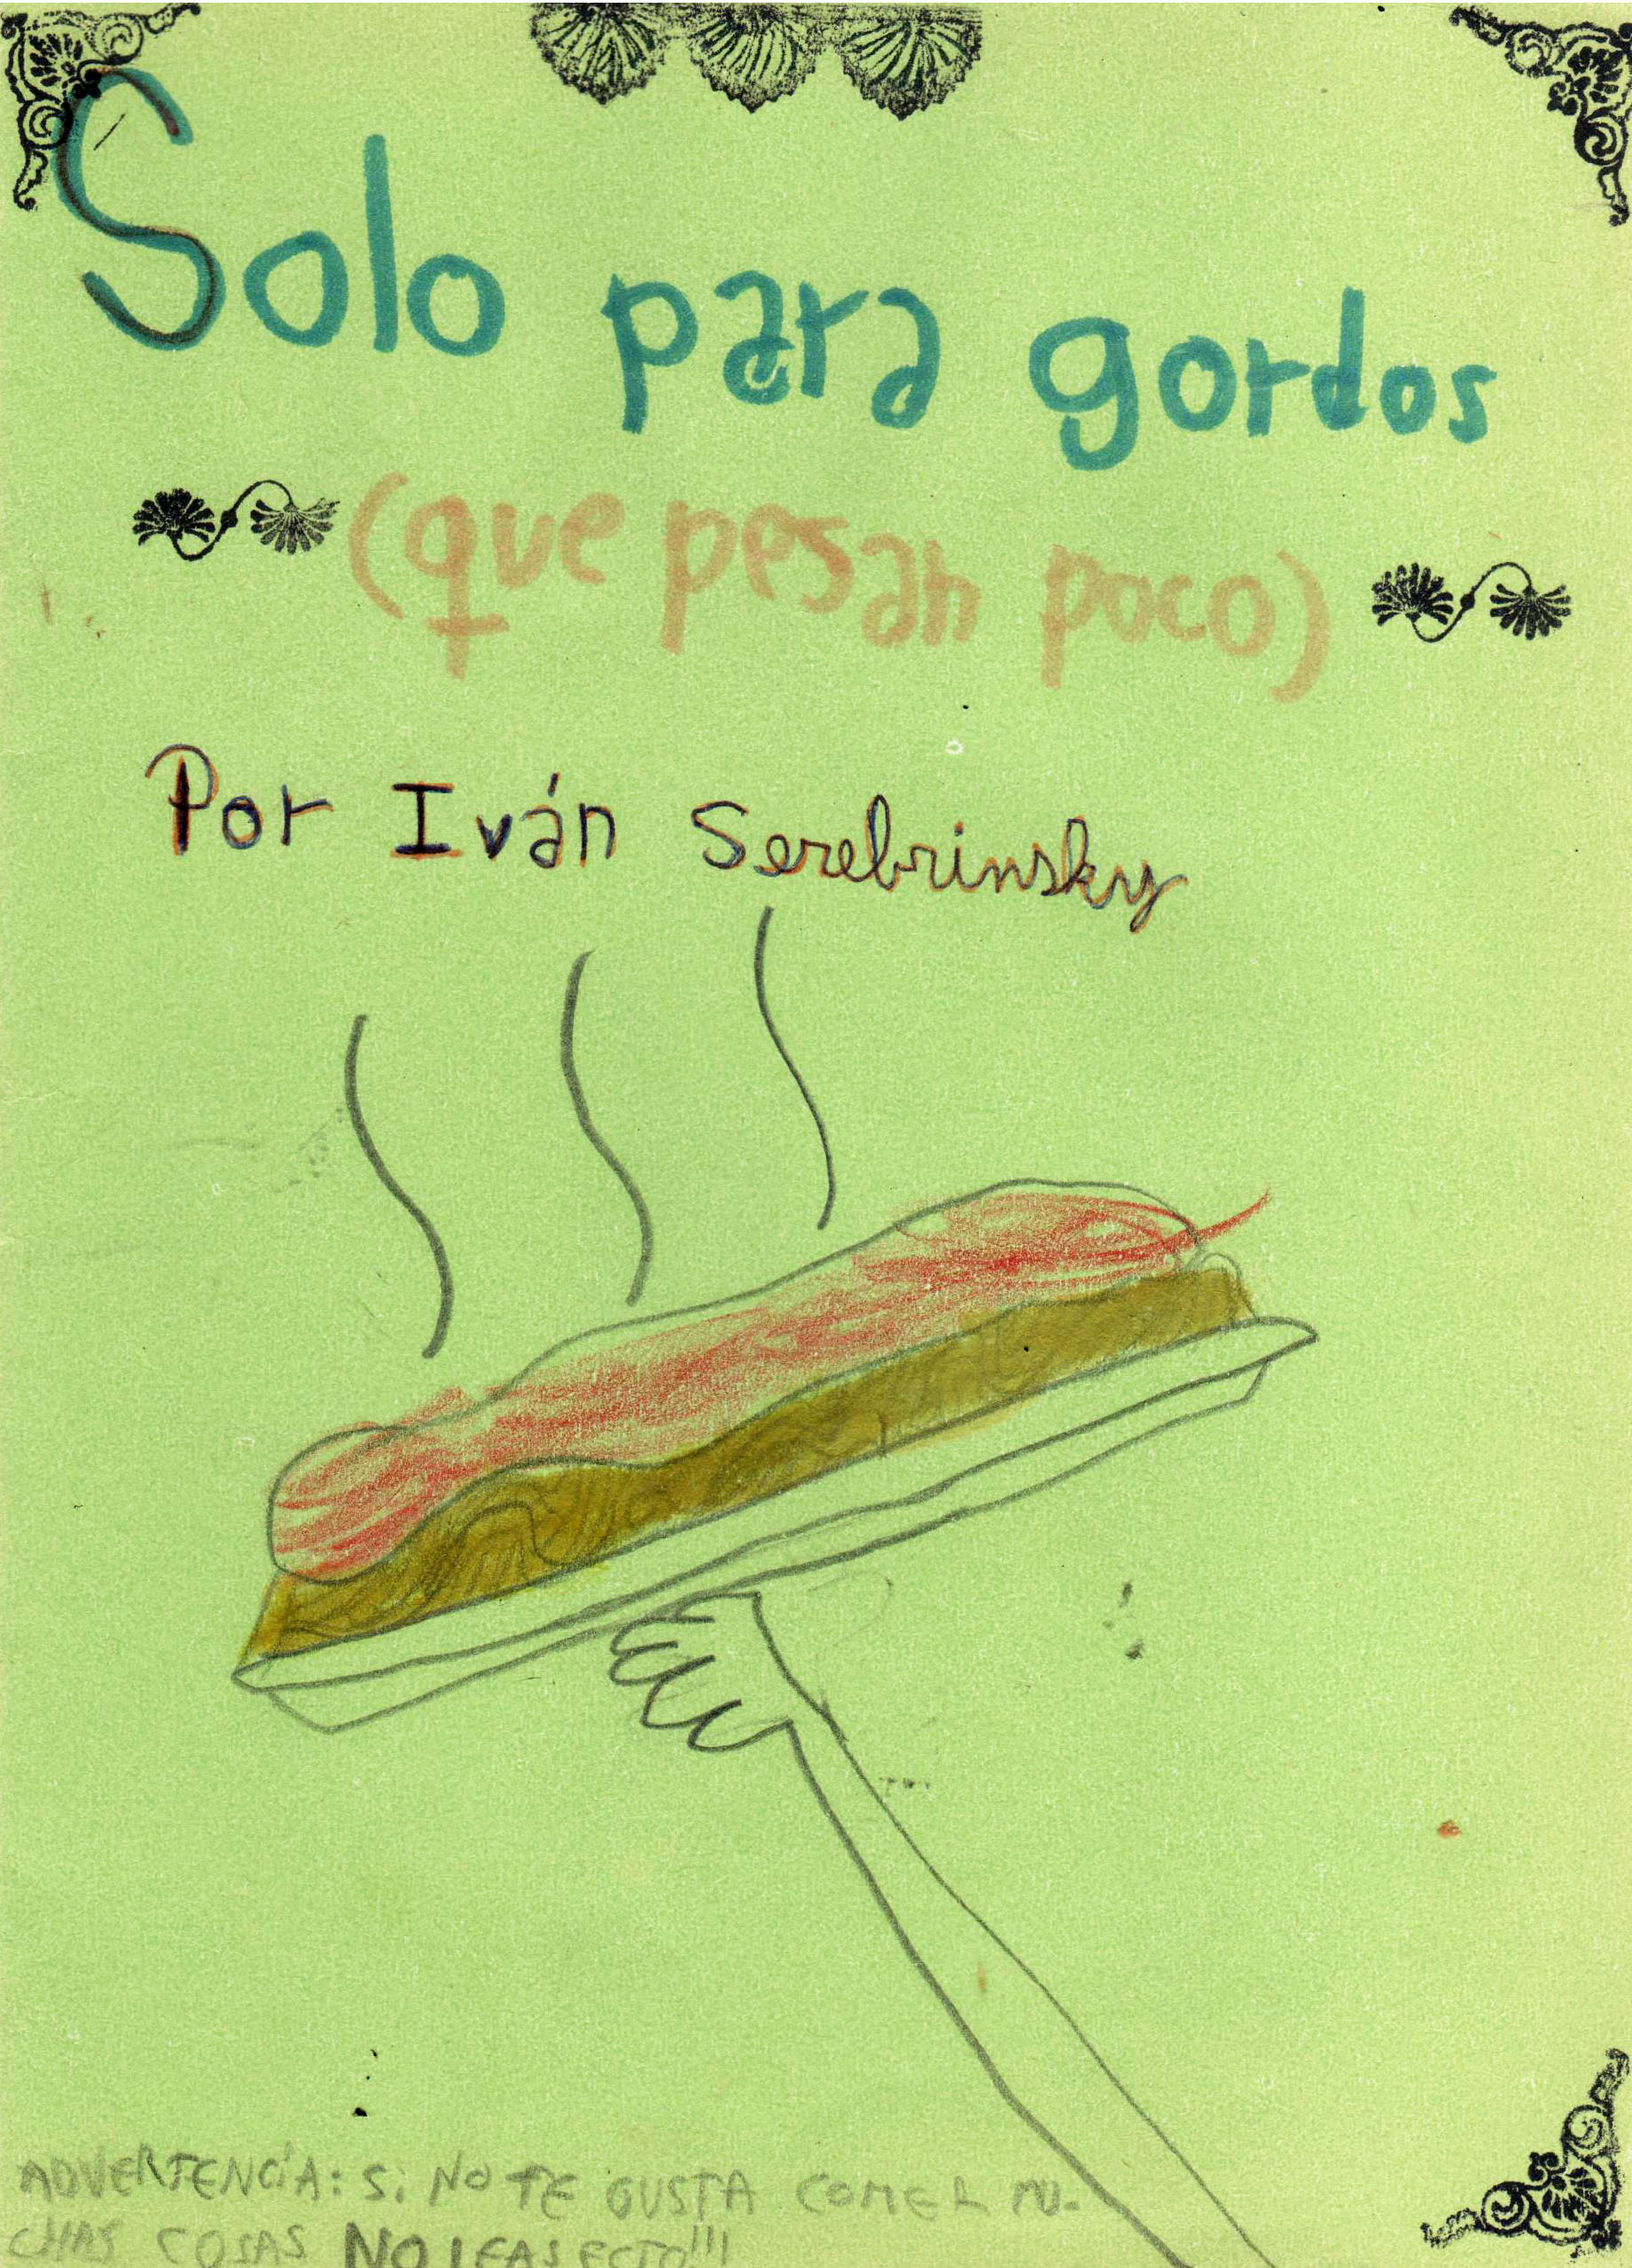 Solo para gordos
(que pesan poco)
Por Iván Serebrinsky
ADVERTENCÍA: Si NO TE GUSTA COMER MU-
CHAS COSAS NO LEAS ECTO!!!